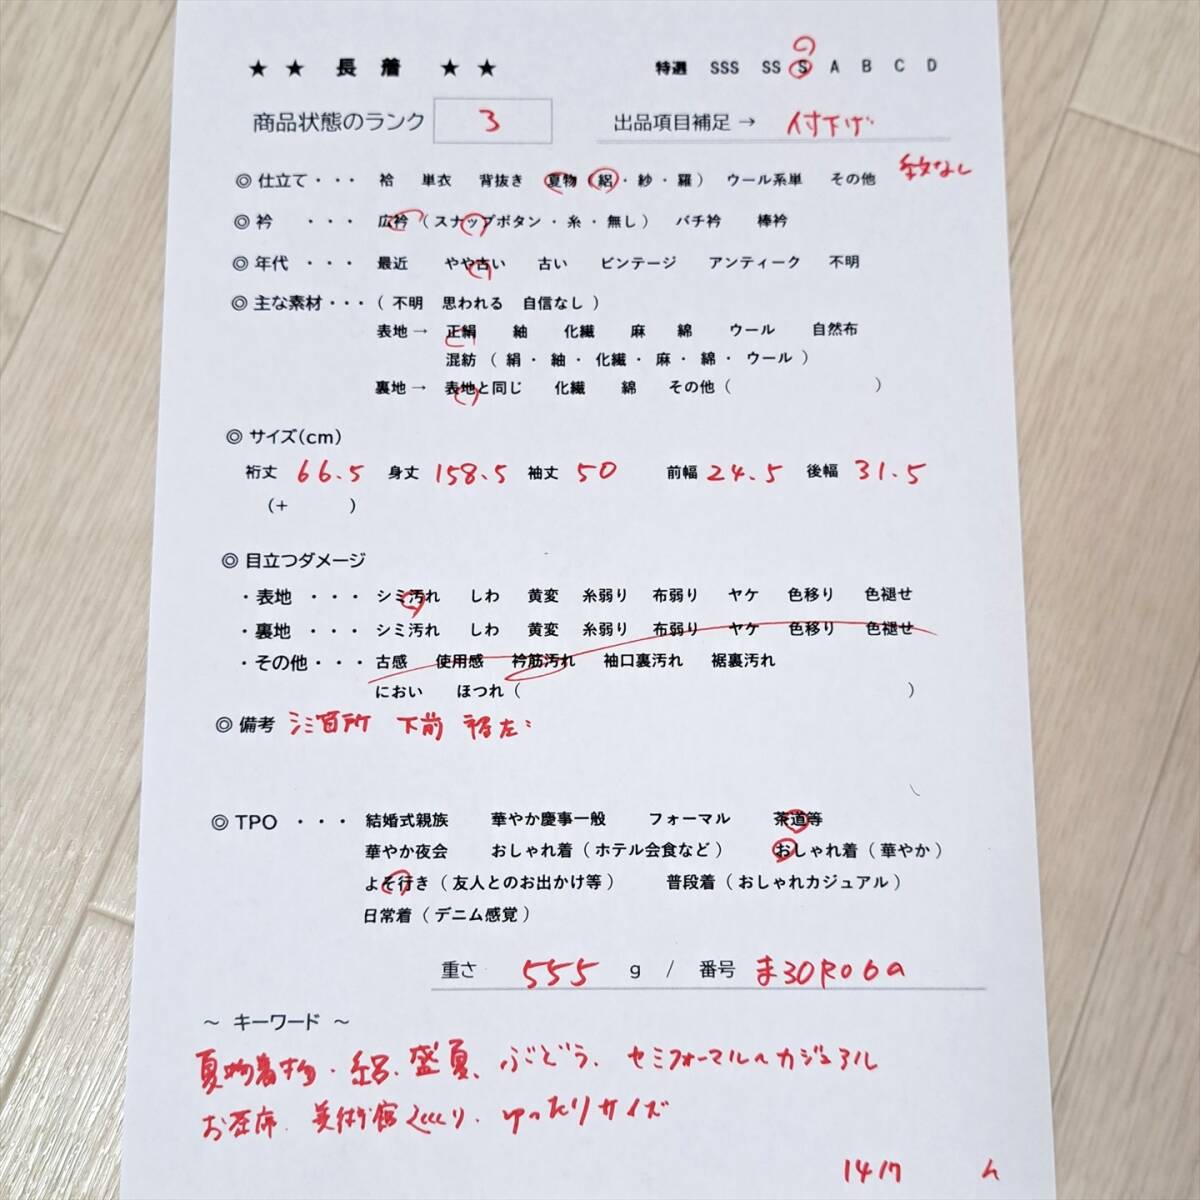 ★ ★ 長 着 ★ ★ 特選 SSS SS S A B C D
商品状態のランク 3 出品項目補足 → 付下げ
紋なし
◎ 仕立て・・・ 袷 単衣 背抜き 夏物（絽・紗・羅） ウール系単 その他
◎ 衿 ・・・ 広衿（スナップボタン・糸・無し） バチ衿 棒衿
◎ 年代 ・・・ 最近 やや古い 古い ビンテージ アンティーク 不明
◎ 主な素材・・・（ 不明 思われる 自信なし ）
表地→ 正絹 紬 化繊 麻 綿 ウール 自然布
混紡（ 絹・ 紬・ 化繊・ 麻・ 綿・ ウール ）
裏地→ 表地と同じ 化繊 綿 その他（ ）
◎ サイズ(cm)
裄丈 66.5 身丈 158.5 袖丈 50 前幅 24.5 後幅 31.5
(+ )
◎ 目立つダメージ
・表地 ・・・ シミ汚れ しわ 黄変 糸弱り 布弱り ヤケ 色移り 色褪せ
・裏地 ・・・ シミ汚れ しわ 黄変 糸弱り 布弱り ヤケ 色移り 色褪せ
・その他・・・ 古感 使用感 衿筋汚れ 袖口裏汚れ 裾裏汚れ
におい ほつれ（ ）
◎ 備考 シミ 箇所 下前
◎ TPO ・・・ 結婚式親族 華やか慶事一般 フォーマル 茶道等
華やか夜会 おしゃれ着（ホテル会食など） おしゃれ着（華やか）
よそ行き（友人とのお出かけ等） 普段着（おしゃれカジュアル）
日常着（デニム感覚）
重さ 555 g / 番号 ま30R06a
～ キーワード ～
夏物着物・絽、盛夏、ぶどう、セミフォーマル～カジュアル
お茶席、美術館めぐり、ゆったりサイズ
1417 h